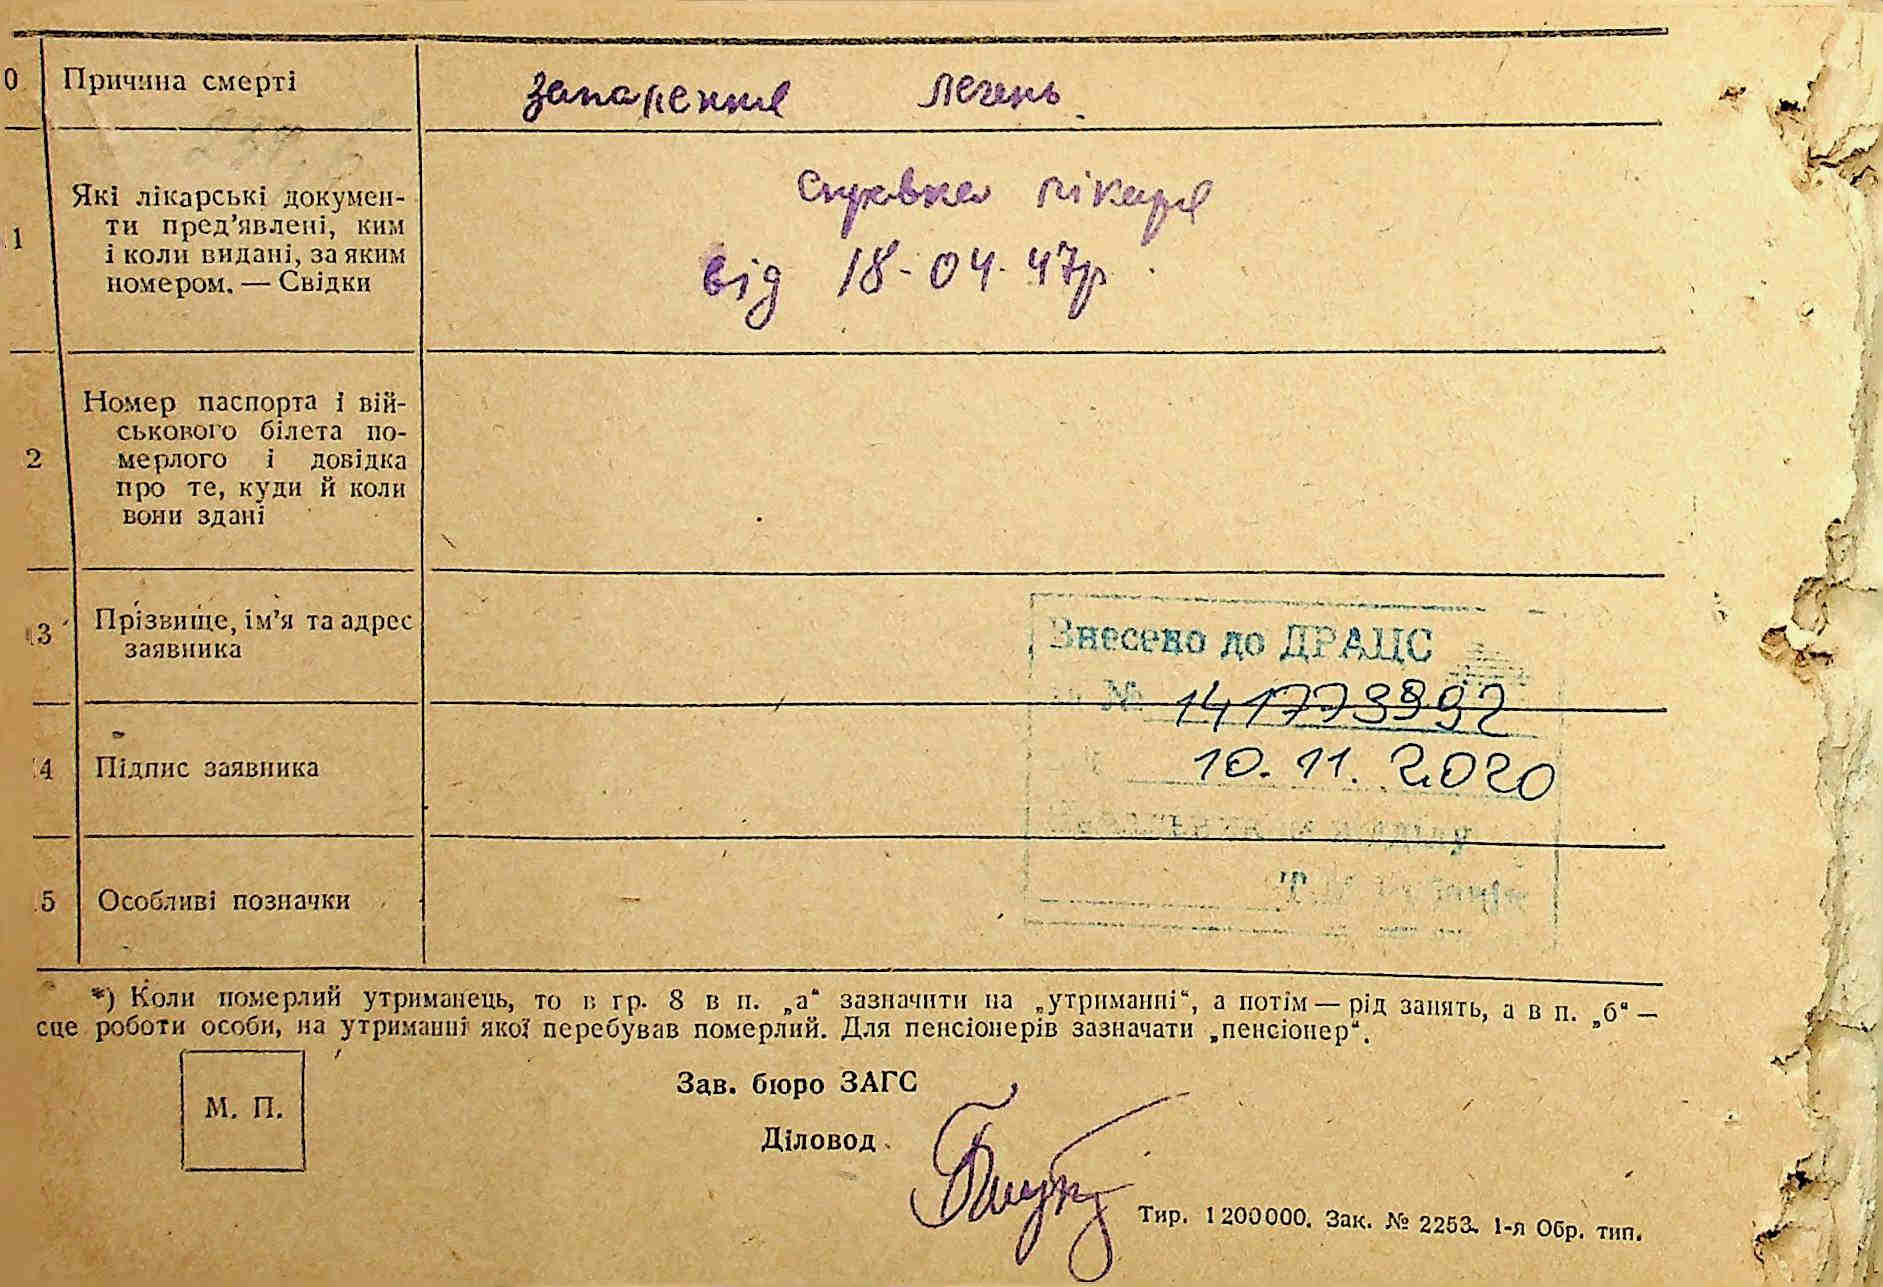 0 Причина смерті запалення легень
1 Які лікарські докумен-
ти пред’явлені, ким
і коли видані, за яким
номером. — Свідки
справка лікаря
від 18-04-47р
2 Номер паспорта і вій-
ськового білета по-
мерлого і довідка
про те, куди й коли
вони здані
3 Прізвище, ім’я та адрес
заявника
Внесено до ДРАЦС
№ 141773992
4 Підпис заявника
10.11.2020
5 Особливі позначки
*) Коли померлий утриманець, то в гр. 8 в п. „а“ зазначити на „утриманні“, а потім — рід занять, а в п. „б“ —
сце роботи особи, на утриманні якої перебував померлий. Для пенсіонерів зазначати „пенсіонер“.
М. П.
Зав. бюро ЗАГС
Діловод
Тир. 1200000. Зак. № 2253. 1-я Обр. тип.